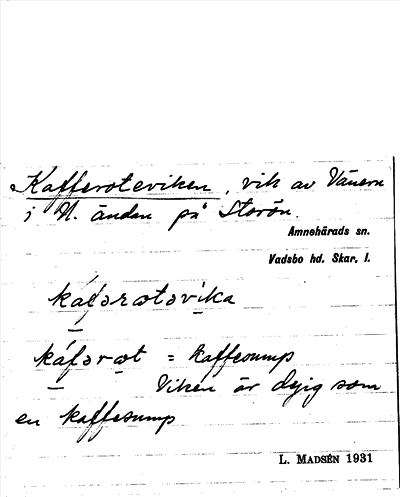 Kafferoteviken, vik av Vänern
i N. ändan på Storön.
Amnehärads sn.
Vadsbo hd. Skar. l.
káfərætəvika
káfəræt = kaffesump
Viken är dyig som
en kaffesump
L. MADSÉN 1931